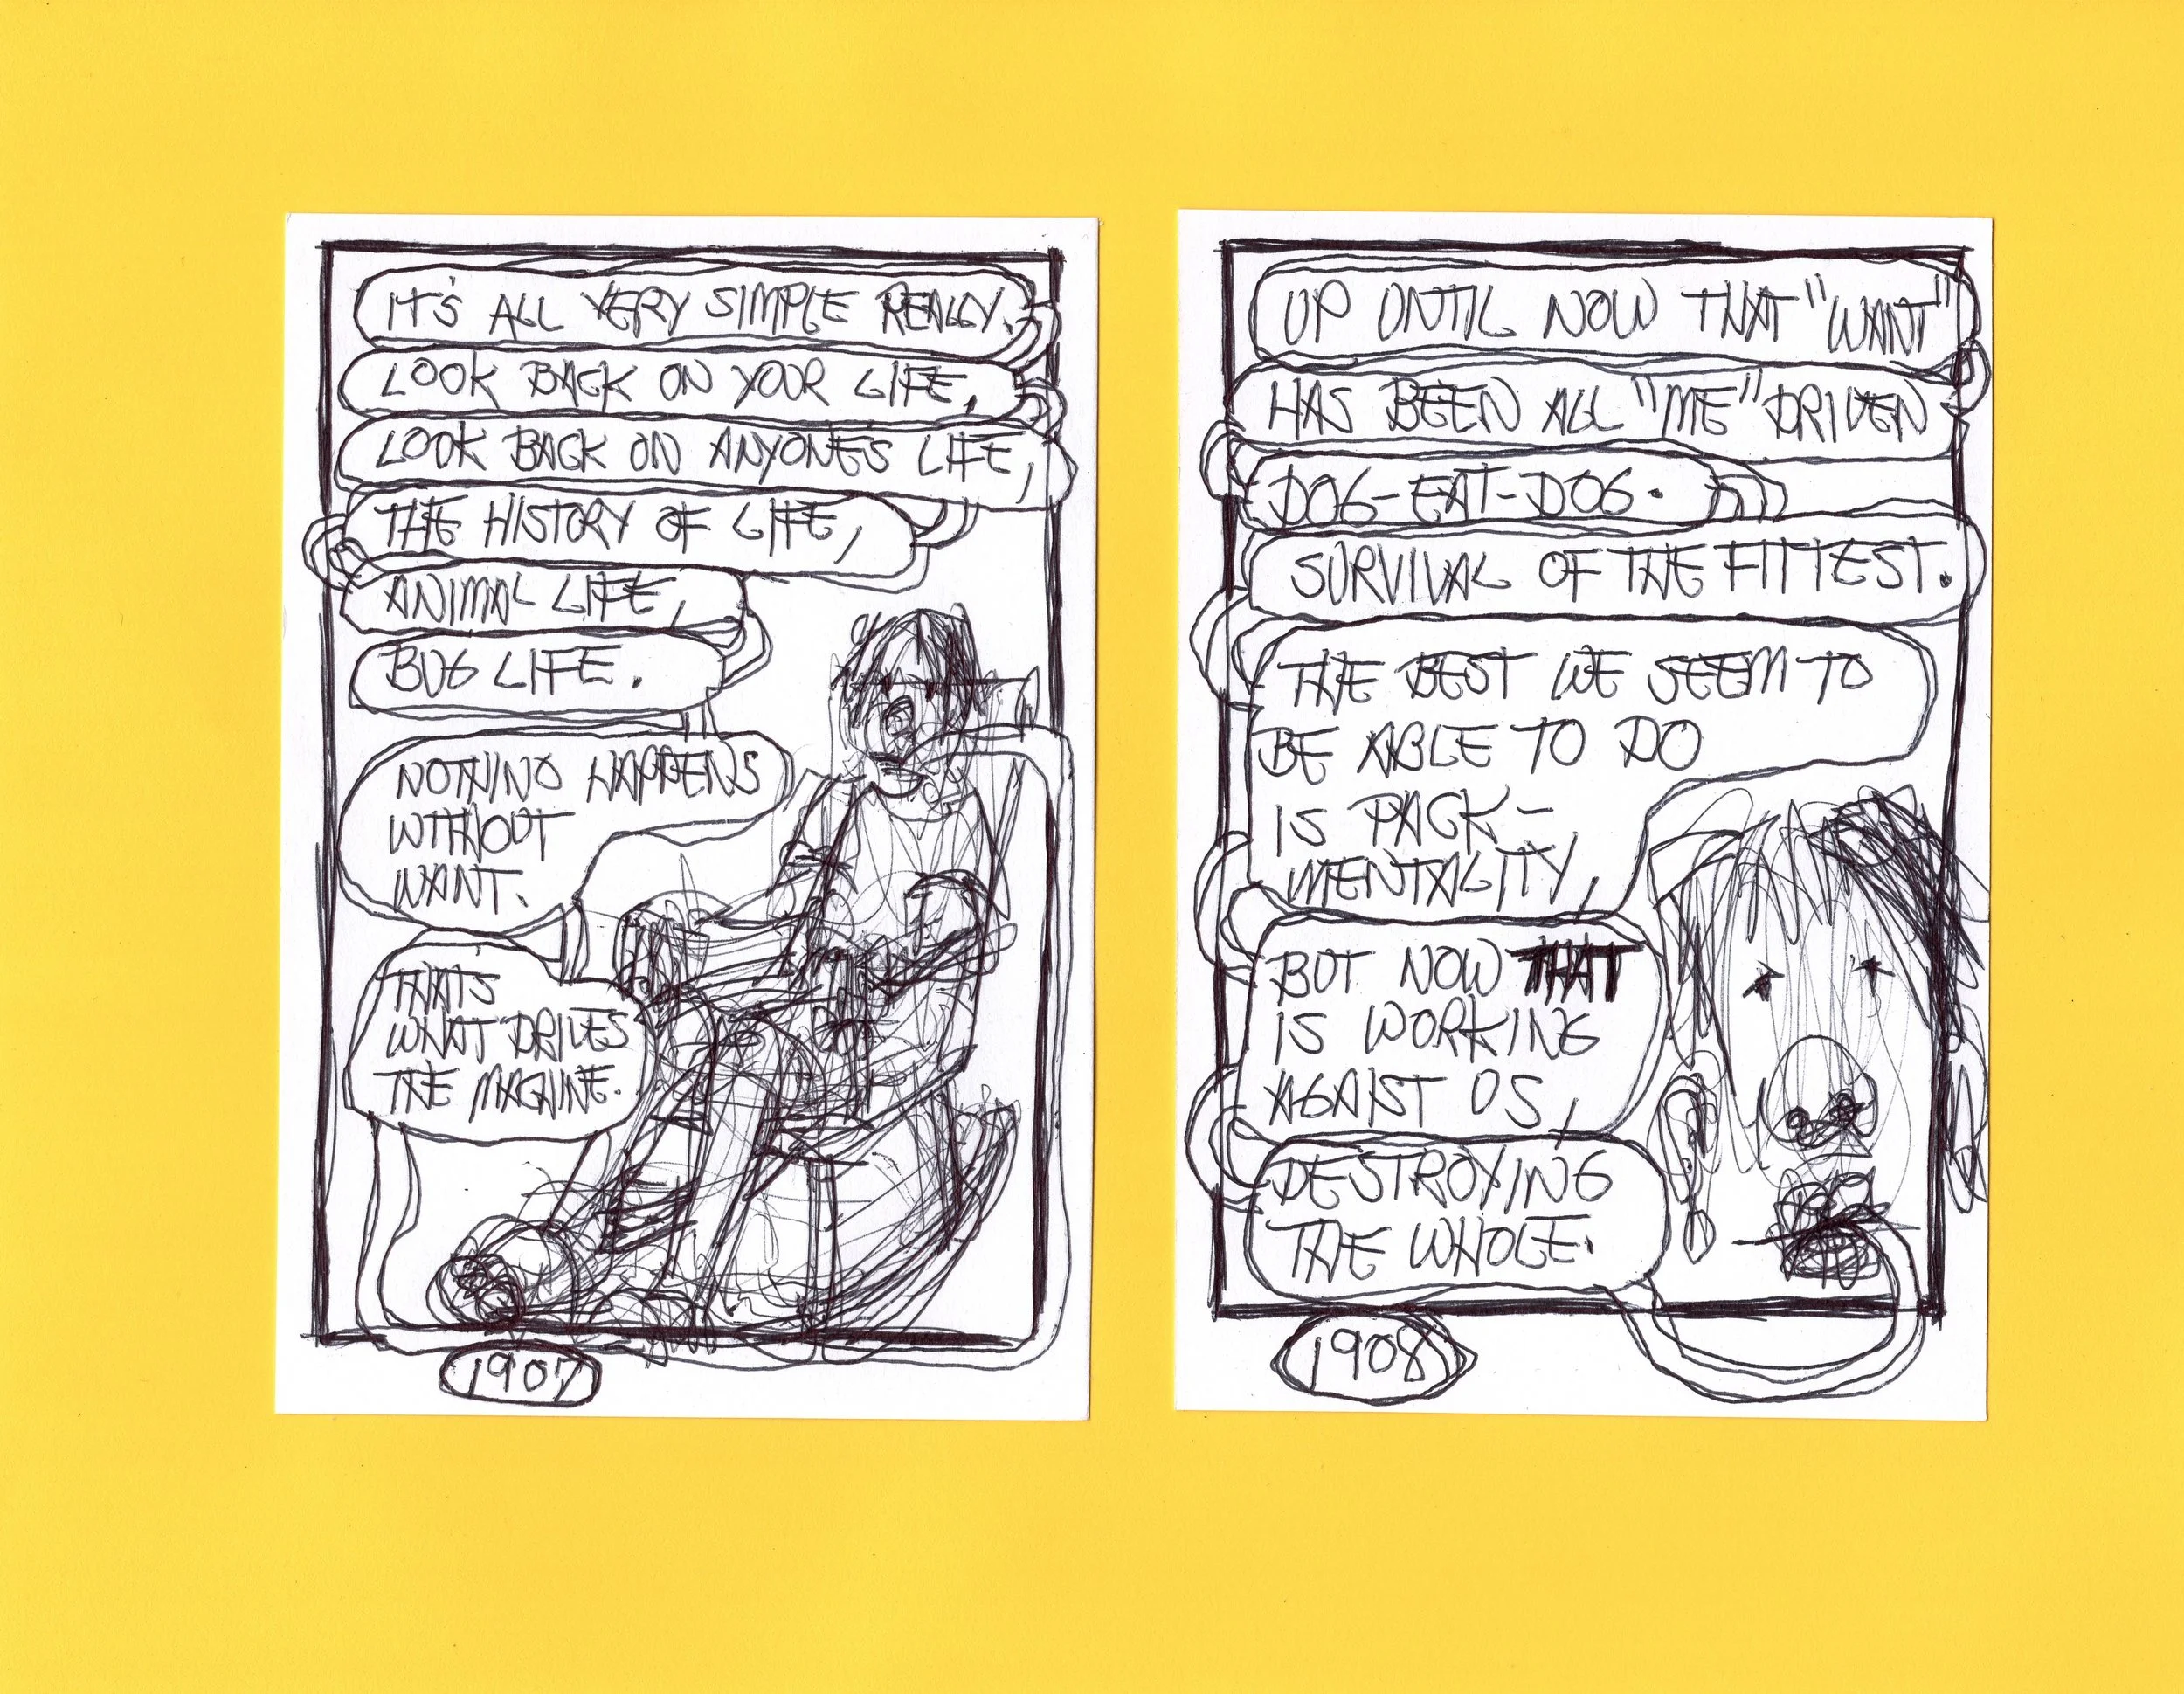 IT'S ALL VERY SIMPLE REALLY.
LOOK BACK ON YOUR LIFE,
LOOK BACK ON ANYONE'S LIFE,
THE HISTORY OF LIFE,
ANIMAL LIFE,
BUG LIFE.
NOTHING HAPPENS
WITHOUT
WANT.
THAT'S
WHAT DRIVES
THE MACHINE.
1907
UP UNTIL NOW THAT "WANT"
HAS BEEN ALL "ME" DRIVEN
DOG-EAT-DOG.
SURVIVAL OF THE FITTEST.
THE BEST WE SEEM TO
BE ABLE TO DO
IS PACK-
MENTALITY,
BUT NOW THAT
IS WORKING
AGAIST US,
DESTROYING
THE WHOLE.
1908